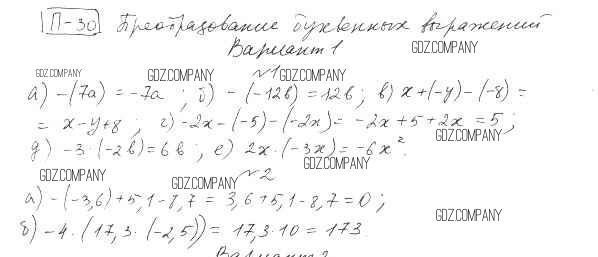 П-30 Преобразование буквенных выражений
Вариант 1 GDZ.COMPANY
GDZ.COMPANY GDZ.COMPANY №1 GDZ.COMPANY
а) -(7a) = -7a ; б) -(-12b) = 12b ; в) x+(-y)-(-8) =
= x-y+8 ; г) -2x-(-5)-(-2x) = -2x+5+2x = 5 ;
GDZ.COMPANY
д) -3·(-2b) = 6b ; е) 2x·(-3x) = -6x².
GDZ.COMPANY
GDZ.COMPANY GDZ.COMPANY №2
а) -(-3,6)+5,1-8,7 = 3,6+5,1-8,7 = 0 ;
GDZ.COMPANY
б) -4·(17,3·(-2,5)) = 17,3·10 = 173
Вариант 2